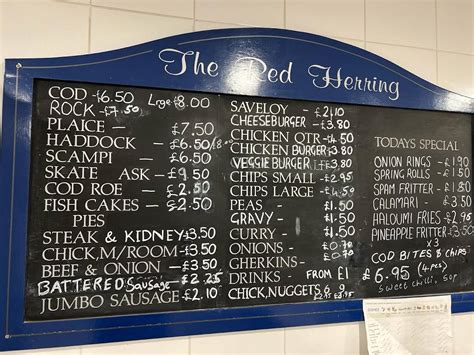 The Red Herring
COD - £6.50 Lrge £8.00
ROCK - £7.50
PLAICE - £7.50
HADDOCK - £6.50/8.00
SCAMPI - £6.50
SKATE ASK - £9.50
COD ROE - £2.50
FISH CAKES - £2.50
PIES
STEAK & KIDNEY £3.50
CHICK,M/ROOM - £3.50
BEEF & ONION - £3.50
BATTERED SAUSAGE £2.25
JUMBO SAUSAGE £2.10
SAVELOY - £2.10
CHEESEBURGER - £3.80
CHICKEN QTR - £4.50
CHICKEN BURGER £3.80
VEGGIE BURGER £3.80
CHIPS SMALL - £2.95
CHIPS LARGE - £4.50
PEAS - £1.50
GRAVY - £1.50
CURRY - £1.50
ONIONS - £0.70
GHERKINS - £0.90
DRINKS - FROM £1
CHICK,NUGGETS 6 9
£2.95 £3.95
TODAYS SPECIAL
ONION RINGS - £1.90
SPRING ROLLS - £1.50
SPAM FRITTER - £1.80
CALAMARI - £3.50
HALOUMI FRIES £2.95
PINEAPPLE FRITTER £3.95
x3
COD BITES & CHIPS
£6.95 (4.pcs)
sweet chilli, Sop